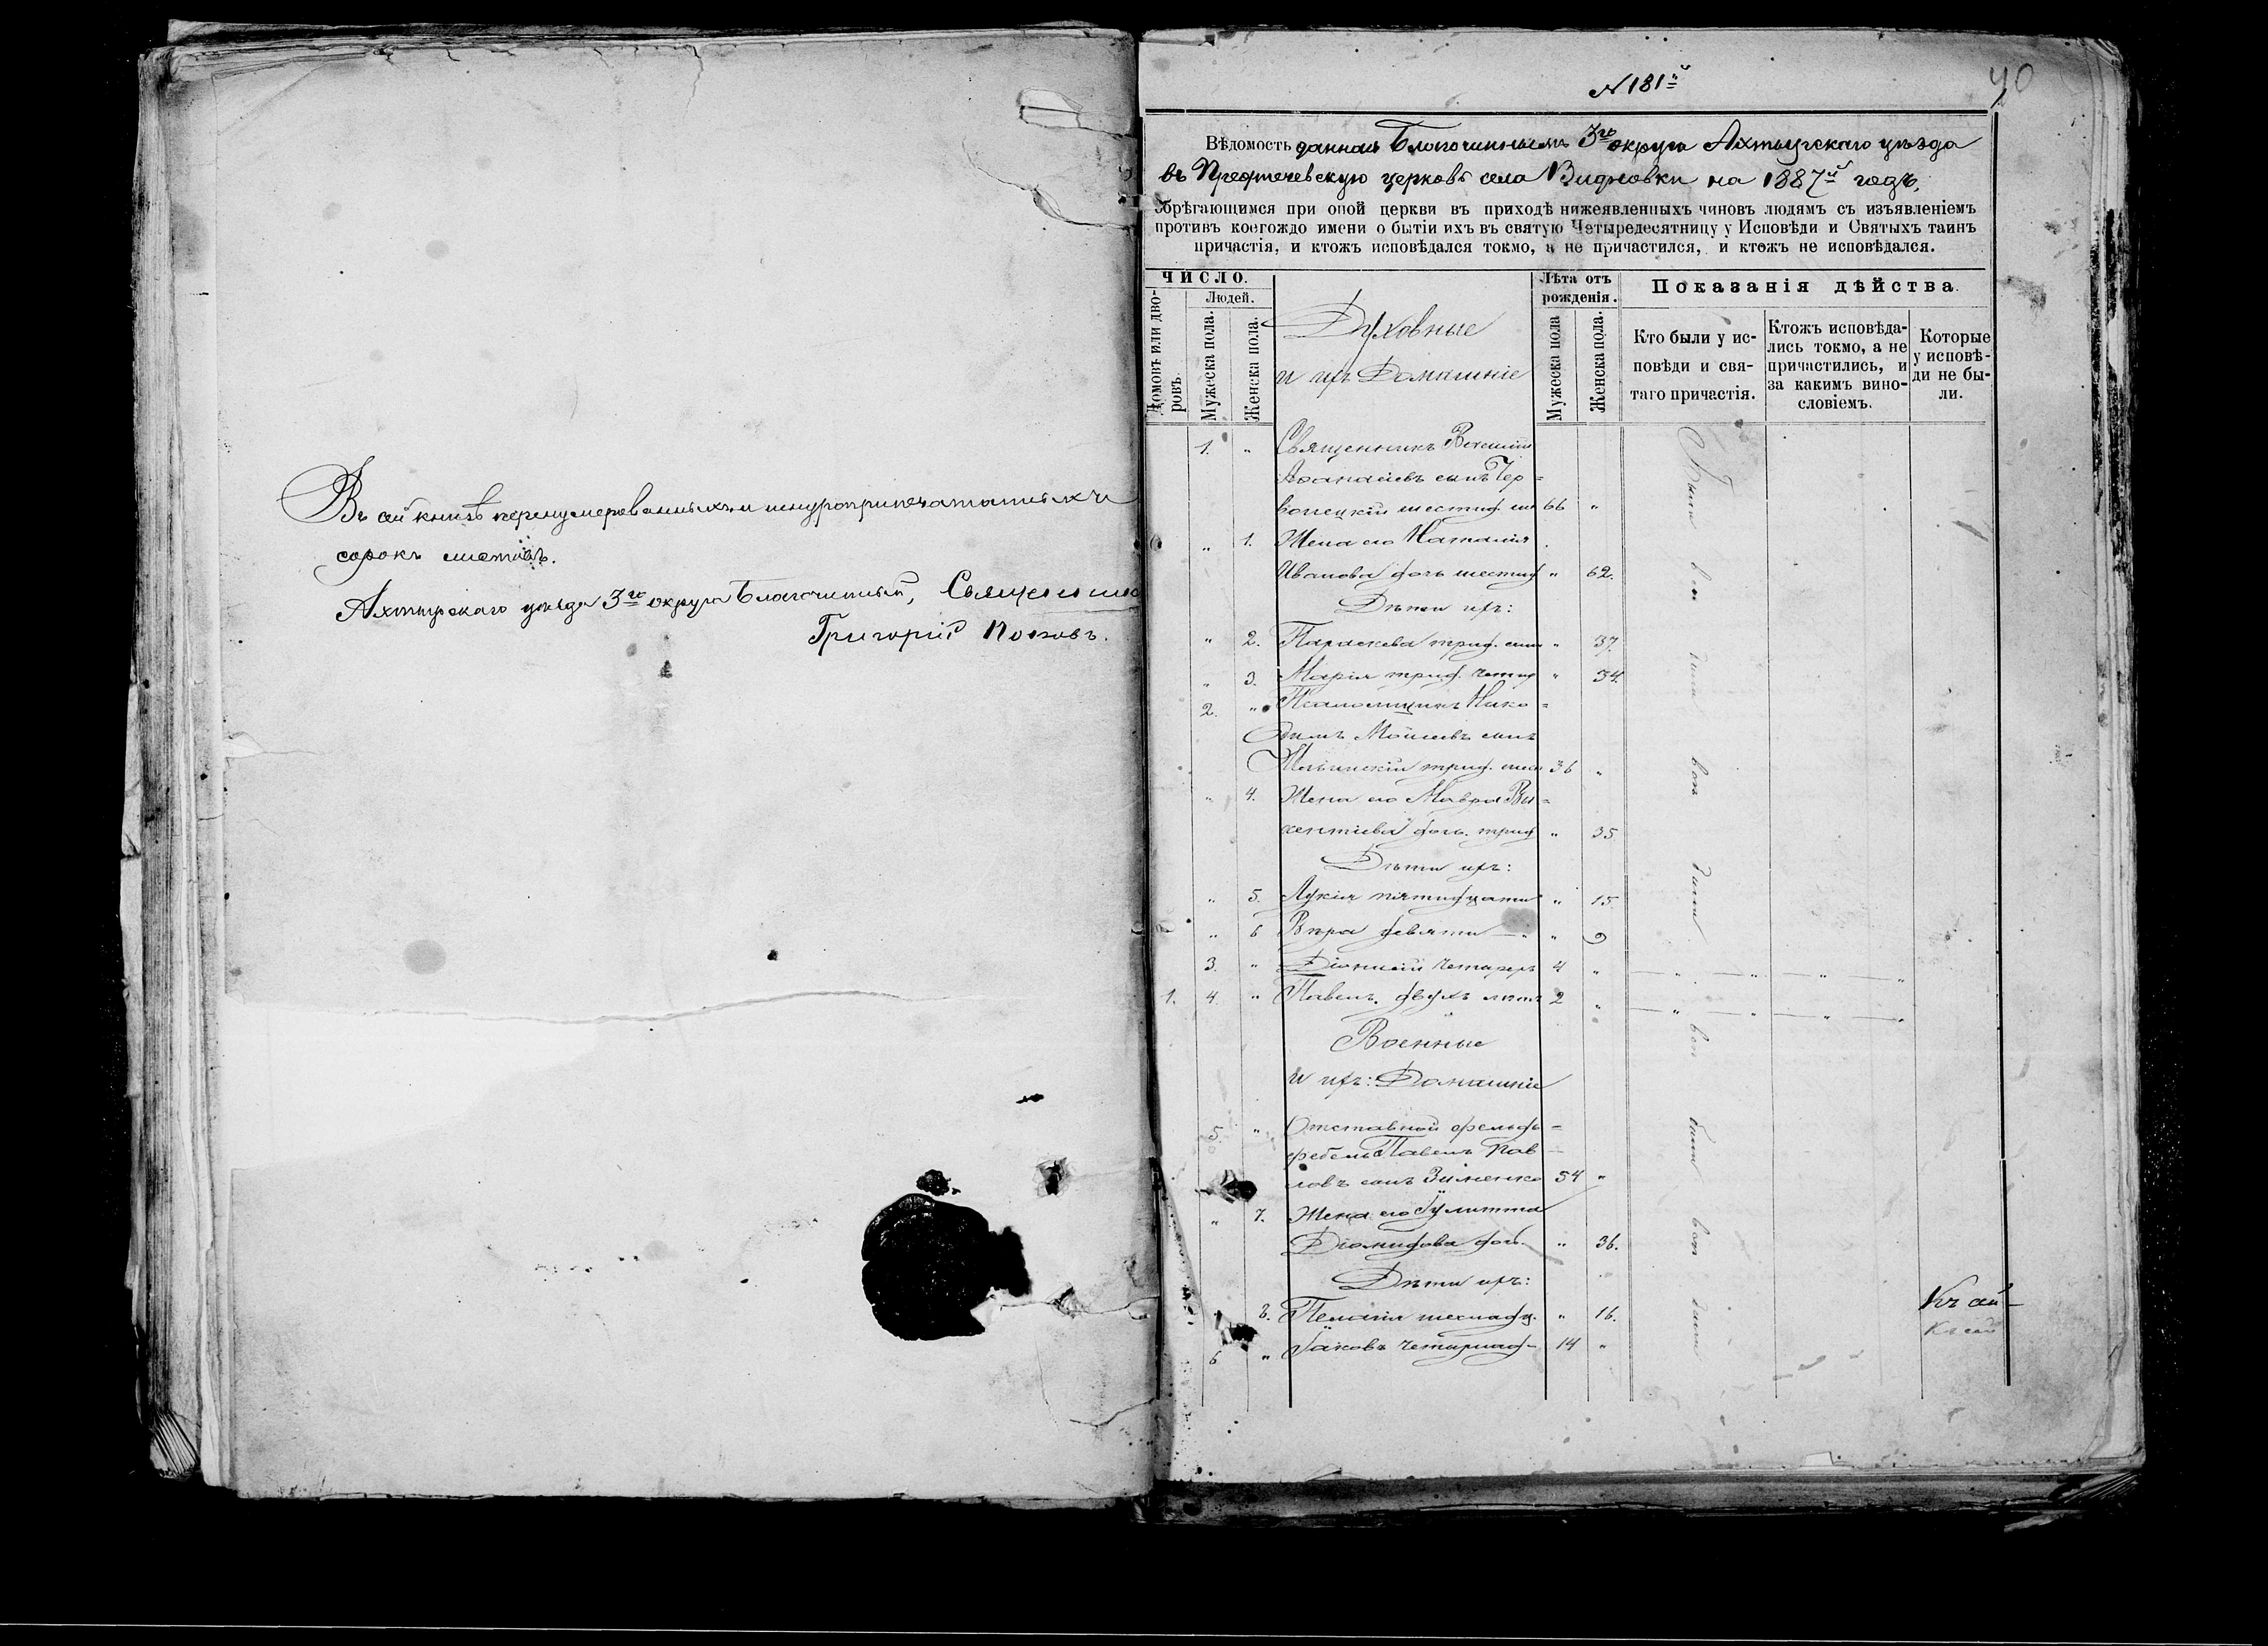 Въ сей книгѣ перенумерованныхъ и шнуроприпечатанныхъ
сорокъ листовъ.
Ахтырскаго уѣзда 3го округа Благочинный, Священник
Григорій Поповъ.
№ 181й
40
Вѣдомость данная Благочиннымъ 3го округа Ахтырскаго уѣзда
въ Предтечевскую церковь села Видновки на 1887й годъ,
обрѣтающимся при оной церкви въ приходѣ нижеявленныхъ чиновъ людямъ съ изъявленіемъ
противъ коегождо имени о бытіи ихъ въ святую Четыредесятницу у Исповѣди и Святыхъ таинъ
причастія, и ктожъ исповѣдался токмо, а не причастился, и ктожъ не исповѣдался.
ЧИСЛО.
Домовъ или дворовъ.
Людей.
Мужеска пола.
Женска пола.
Духовные
и ихъ Домашніе
Лѣта отъ
рожденія.
Мужеска пола
Женска пола.
Показанія дѣйства.
Кто были у ис-
повѣди и свя-
таго причастія.
Ктожъ исповѣда-
лись токмо, а не
причастились, и
за какимъ вино-
словіемъ.
Которые
у исповѣ-
ди не бы-
ли.
1. " Священникъ
Аѳанасіевъ сынъ Чер=
вонецкій шестид. ше 66 "
" 1. Жена его Наталія
Иванова дочь шестид " 62.
Дѣти ихъ:
" 2. Параскева трид. сем " 37.
" 3. Марія трид. четыр " 34.
2. " Псаломщикъ Нико=
димъ Моисеевъ сынъ
трид. шес 36 "
" 4. Жена его Мавра Ви=
кентіева дочь. трид " 35
Дѣти ихъ:
" 5. Лукія пятнадцати " 15.
" 6 Вѣра девяти " 9
3. " Діонисій четырехъ 4 "
1. 4. " Павелъ. двухъ лѣтъ 2 "
Военные
и ихъ: Домашніе
5. " Отставной фельдъ=
фебель Павелъ Пав
ловъ сынъ Зименко 54 "
" 7. Жена его Іулитта
Діомидова доч. " 36.
Дѣти ихъ:
8. Пелагія шестнадц. " 16.
6 " Іаковъ четырнад- 14 "
Къ сей
Къ сей